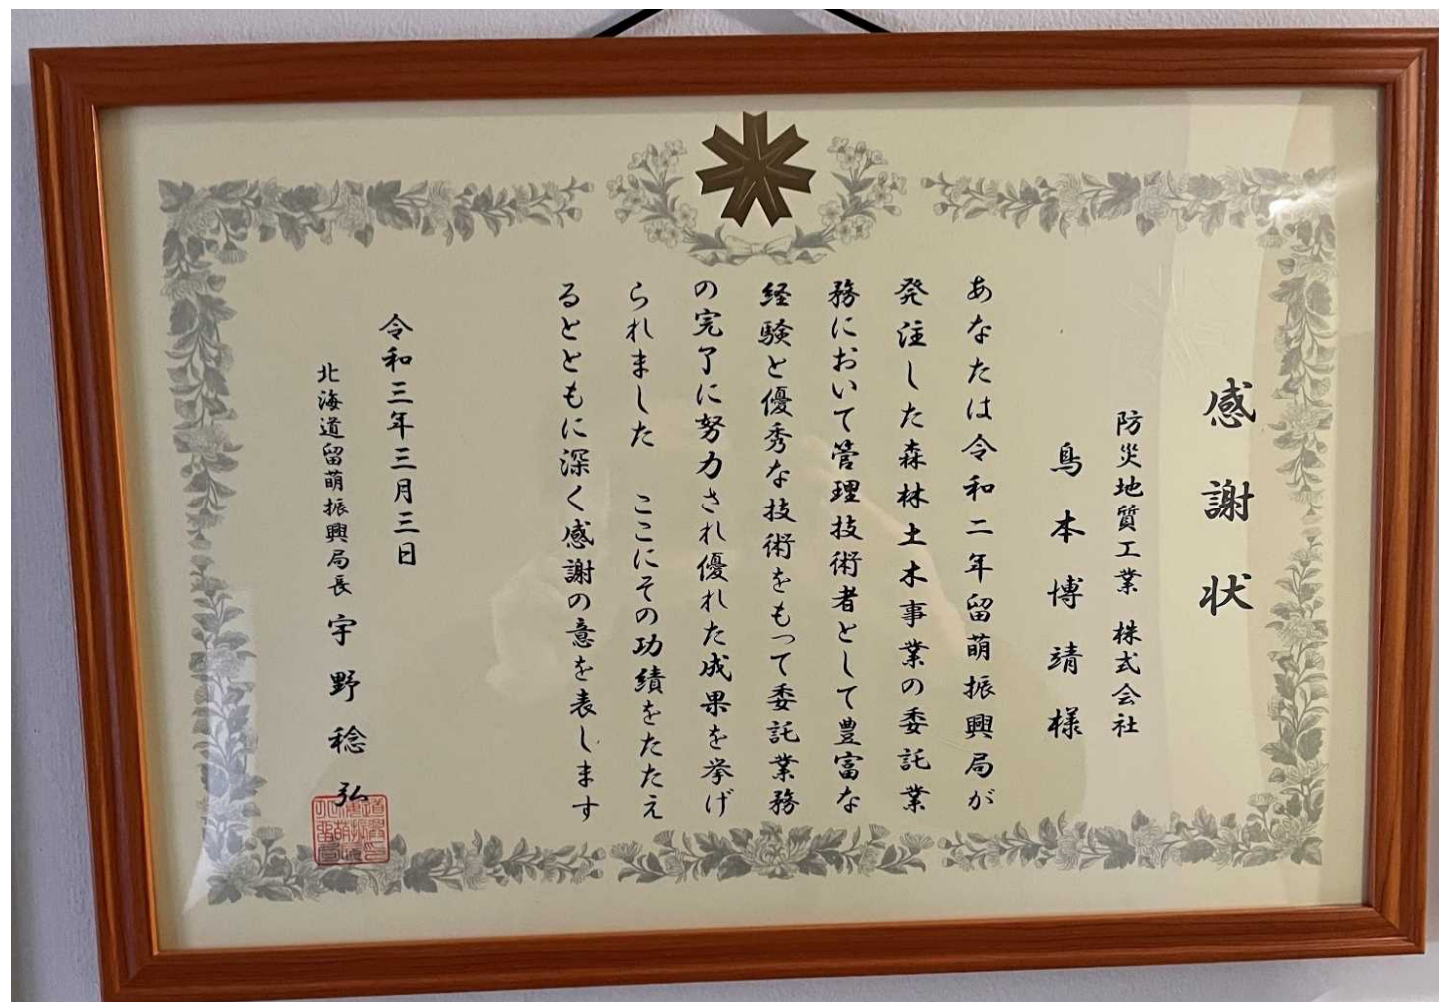 感謝状
防災地質工業 株式会社
鳥本博靖様
あなたは令和二年留萌振興局が
発注した森林土木事業の委託業
務において管理技術者として豊富な
経験と優秀な技術をもって委託業務
の完了に努力され優れた成果を挙げ
られました ここにその功績をたたえ
るとともに深く感謝の意を表します
令和三年三月三日
北海道留萌振興局長 宇野稔弘